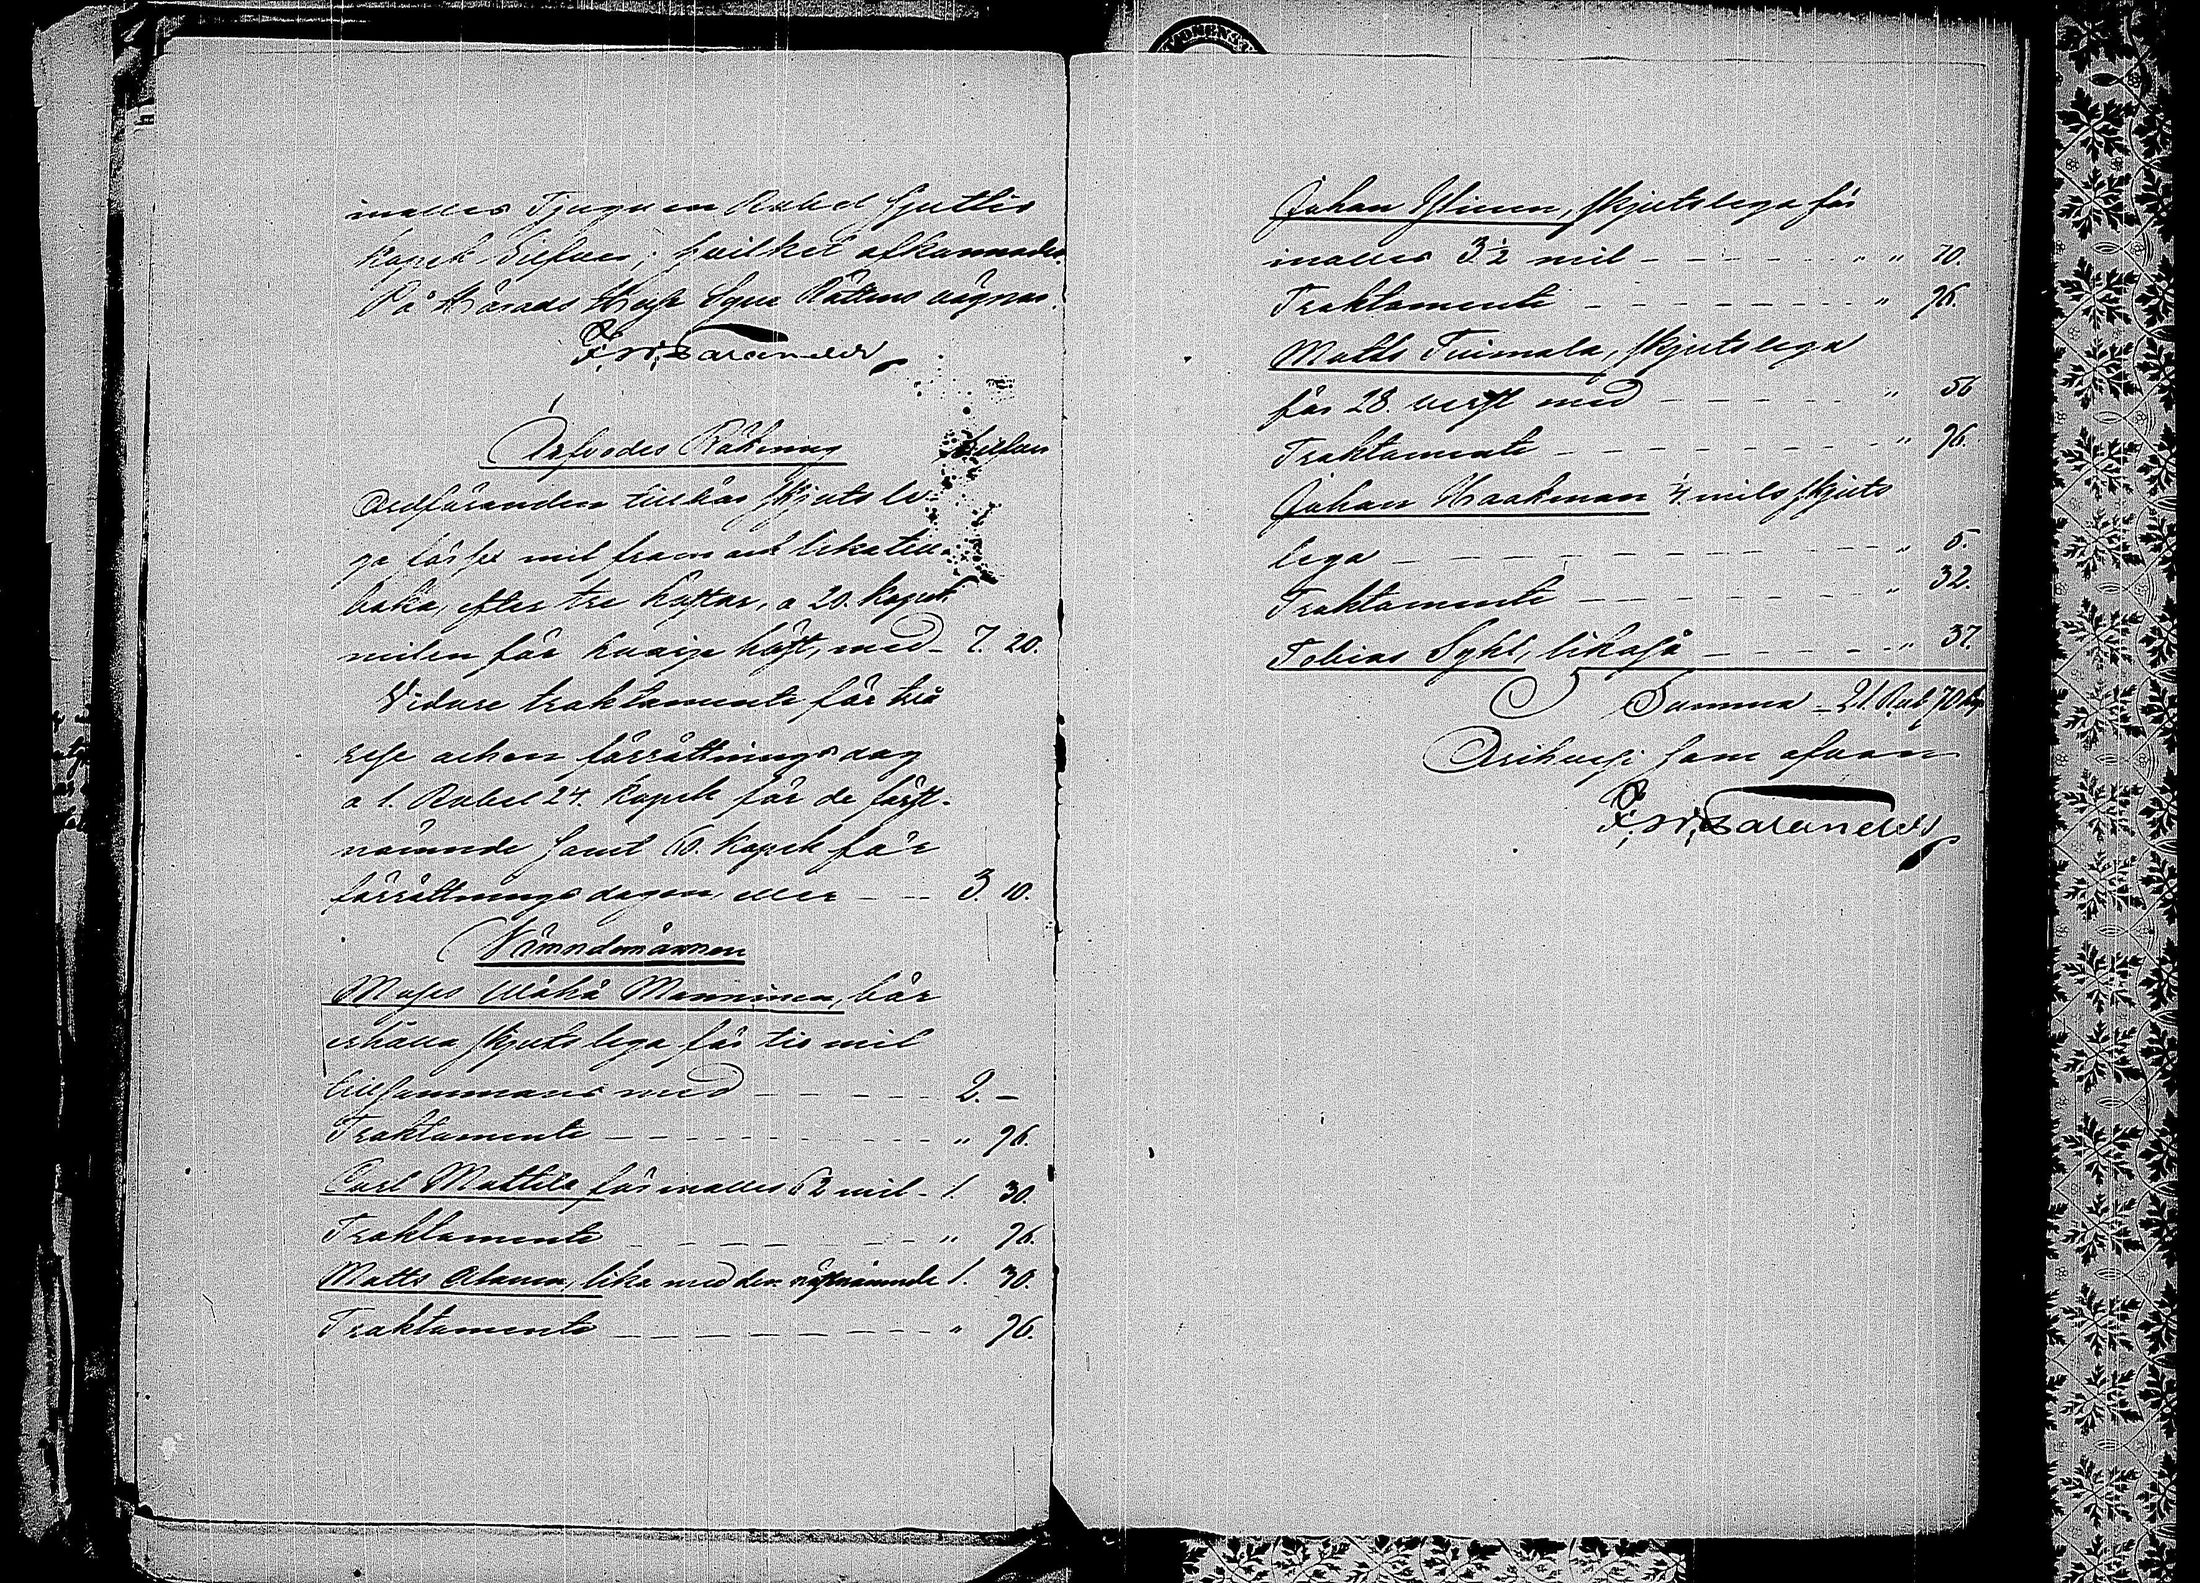 inalles Tjuguen Rubel Sjuttio
kopek Silfver; hvilket afkunnades.
På Härads Syne Rättens vägnar.
Arfvodes Räkning Silfver
Ordföranden tillkår skjuts le-
ga för sex mil fram och lika till-
baka, efter tre hästar, a 20. kopek
milen för hvarje häst, med - 7. 20.
Vidare traktamente för två
rese och en förrättningsdag
a 1. Rubel 24. kopek för de först-
nämnde samt 60. kopek för
förrättningsdagen eller - - - 3. 10.
Nämndemännen
Moses Manninen, bör
erhålla skjutslega för tio mil
tillsammans med - - - - - 2. -
Traktamente - - - - - - - - - " 96.
Carl Mattila för inalles 6½ mil - 1. 30.
Traktamente - - - - - - - - " 96.
Matts lika med den näst nämnde 1. 30.
Traktamente - - - - - - - - - " 96.
Johan skjutslega för
inalles 3½ mil - - - - - - " " 70.
Traktamente - - - - - - - - " 96.
Matts Tuimala, skjutslega
för 28. verst med - - - - - " 56
Traktamente - - - - - - - - " 96.
Johan Kaakman ¼ mils skjuts
lega - - - - - - - - - - - " 5.
Traktamente - - - - - - - - " 32.
Tobias likaså - - - - - " 37.
Summa - 21. Rub 70 kop
som ofvan